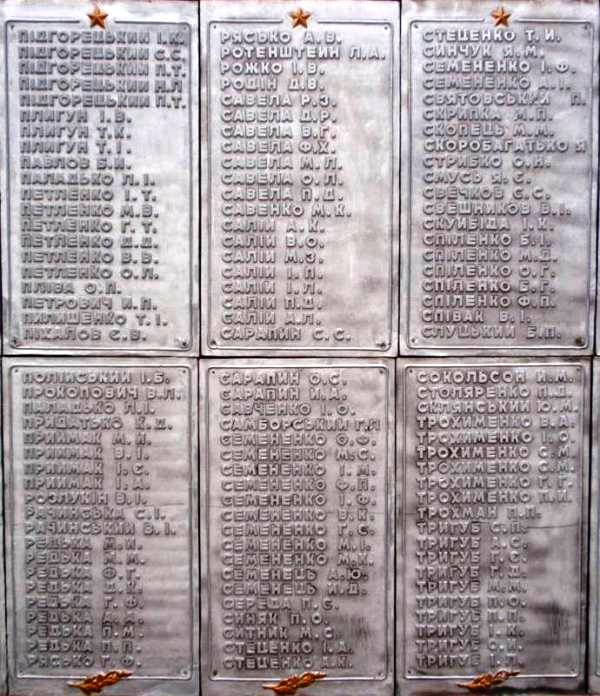 ПІДГОРЕЦЬКИЙ І.К.
ПІДГОРЕЦЬКИЙ С.С.
ПІДГОРЕЦЬКИЙ П.Т.
ПІДГОРЕЦЬКИЙ Н.П
ПІДГОРЕЦЬКИЙ П.Т.
ПЛИГУН І.В.
ПЛИГУН Т.К.
ПЛИГУН Т.І.
ПАВЛОВ Б.И.
ПАЛАДЬКО Л.І.
ПЕТЛЕНКО І.Т.
ПЕТЛЕНКО М.В.
ПЕТЛЕНКО Г.Т.
ПЕТЛЕНКО Д.Д.
ПЕТЛЕНКО В.В.
ПЕТЛЕНКО О.Л.
ПЛІВА О.П.
ПЕТРОВИЧ И.П.
ПИЛИПЕНКО Т.І.
ПІХАЛОВ С.В.
ПОЛІЙСЬКИЙ І.Б.
ПРОКОПОВИЧ В.Л.
ПАЛАДЬКО Л.І.
ПРИДАТЬКО К.Д.
ПРИЙМАК М.Й.
ПРИЙМАК В.І.
ПРИЙМАК І.Є.
ПРИЙМАК І.А.
РОЗЛУКІН В.І.
РАЧИНСЬКА С.І.
РАЧИНСЬКИЙ В.І.
РЕДЬКА М.И.
РЕДЬКА М.М.
РЕДЬКА Ф.Г.
РЕДЬКА
РЕДЬКА Г.Ф.
РЕДЬКА
РЕДЬКА П.М.
РЕДЬКА П.П.
РЯСЬКО Г.Ф.
РЯСЬКО А.В.
РОТЕНШТЕИН Л.А.
РОЖКО І.В.
РОДІН Д.В.
САВЕЛА Р.З.
САВЕЛА Д.Р.
САВЕЛА В.Г.
САВЕЛА Ф.Х.
САВЕЛА М.Л.
САВЕЛА О.Л.
САВЕЛА П.Д.
САВЕНКО М.К.
САЛІЙ А.К.
САЛІЙ В.О.
САЛІЙ М.З.
САЛІЙ І.П.
САЛІЙ І.Л.
САЛІЙ П.Д.
САЛІЙ А.Л.
САРАПИН С.С.
САРАПИН О.С.
САРАПИН И.А.
САВЧЕНКО І.О.
САМБОРСЬКИЙ Г.П
СЕМЕНЕНКО Ф.Ф.
СЕМЕНЕНКО М.С.
СЕМЕНЕНКО І.М.
СЕМЕНЕНКО Ф.П.
СЕМЕНЕНКО І.Ф.
СЕМЕНЕНКО В.К.
СЕМЕНЕНКО Г.С.
СЕМЕНЕНКО М.І.
СЕМЕНЕНКО М.К.
СЕМЕНЕЦЬ А.Ю.
СЕМЕНЕЦЬ И.Д.
СЕРЕДА П.С.
СИНЯК П.О.
СИТНИК М.С.
СТЕЦЕНКО І.А.
СТЕЦЕНКО А.К.
СТЕЦЕНКО Т.И.
СИНЧУК Я.М.
СЕМЕНЕНКО І.Ф.
СЕМЕНЕНКО А.П.
СВЯТОВСЬКИЙ П.
СКРИПКА М.П.
СКОПЕЦЬ М.М.
СКОРОБАГАТЬКО Я
СТРИБКО О.Н.
СМУСЬ Я.Є.
СВЕЧКОВ С.С.
СВЕШНИКОВ В.І.
СКУЙБІДА І.К.
СПІЛЕНКО Б.І.
СПІЛЕНКО М.Д.
СПІЛЕНКО О.Г.
СПІЛЕНКО Б.Г.
СПІЛЕНКО Ф.П.
СПІВАК В.І.
СЛУЦЬКИЙ Б.П.
СОКОЛЬСОН И.М.
СТОЛЯРЕНКО П.Д.
СКЛЯНСЬКИЙ Ю.М.
ТРОХИМЕНКО В.А.
ТРОХИМЕНКО І.О.
ТРОХИМЕНКО С.М.
ТРОХИМЕНКО О.М.
ТРОХИМЕНКО Г.Г.
ТРОХИМЕНКО П.И.
ТРОХМАН П.П.
ТРИГУБ С.П.
ТРИГУБ А.С.
ТРИГУБ П.С.
ТРИГУБ Г.Д.
ТРИГУБ М.М.
ТРИГУБ П.О.
ТРИГУБ П.П.
ТРИГУБ І.К.
ТРИГУБ С.И.
ТРИГУБ І.Л.